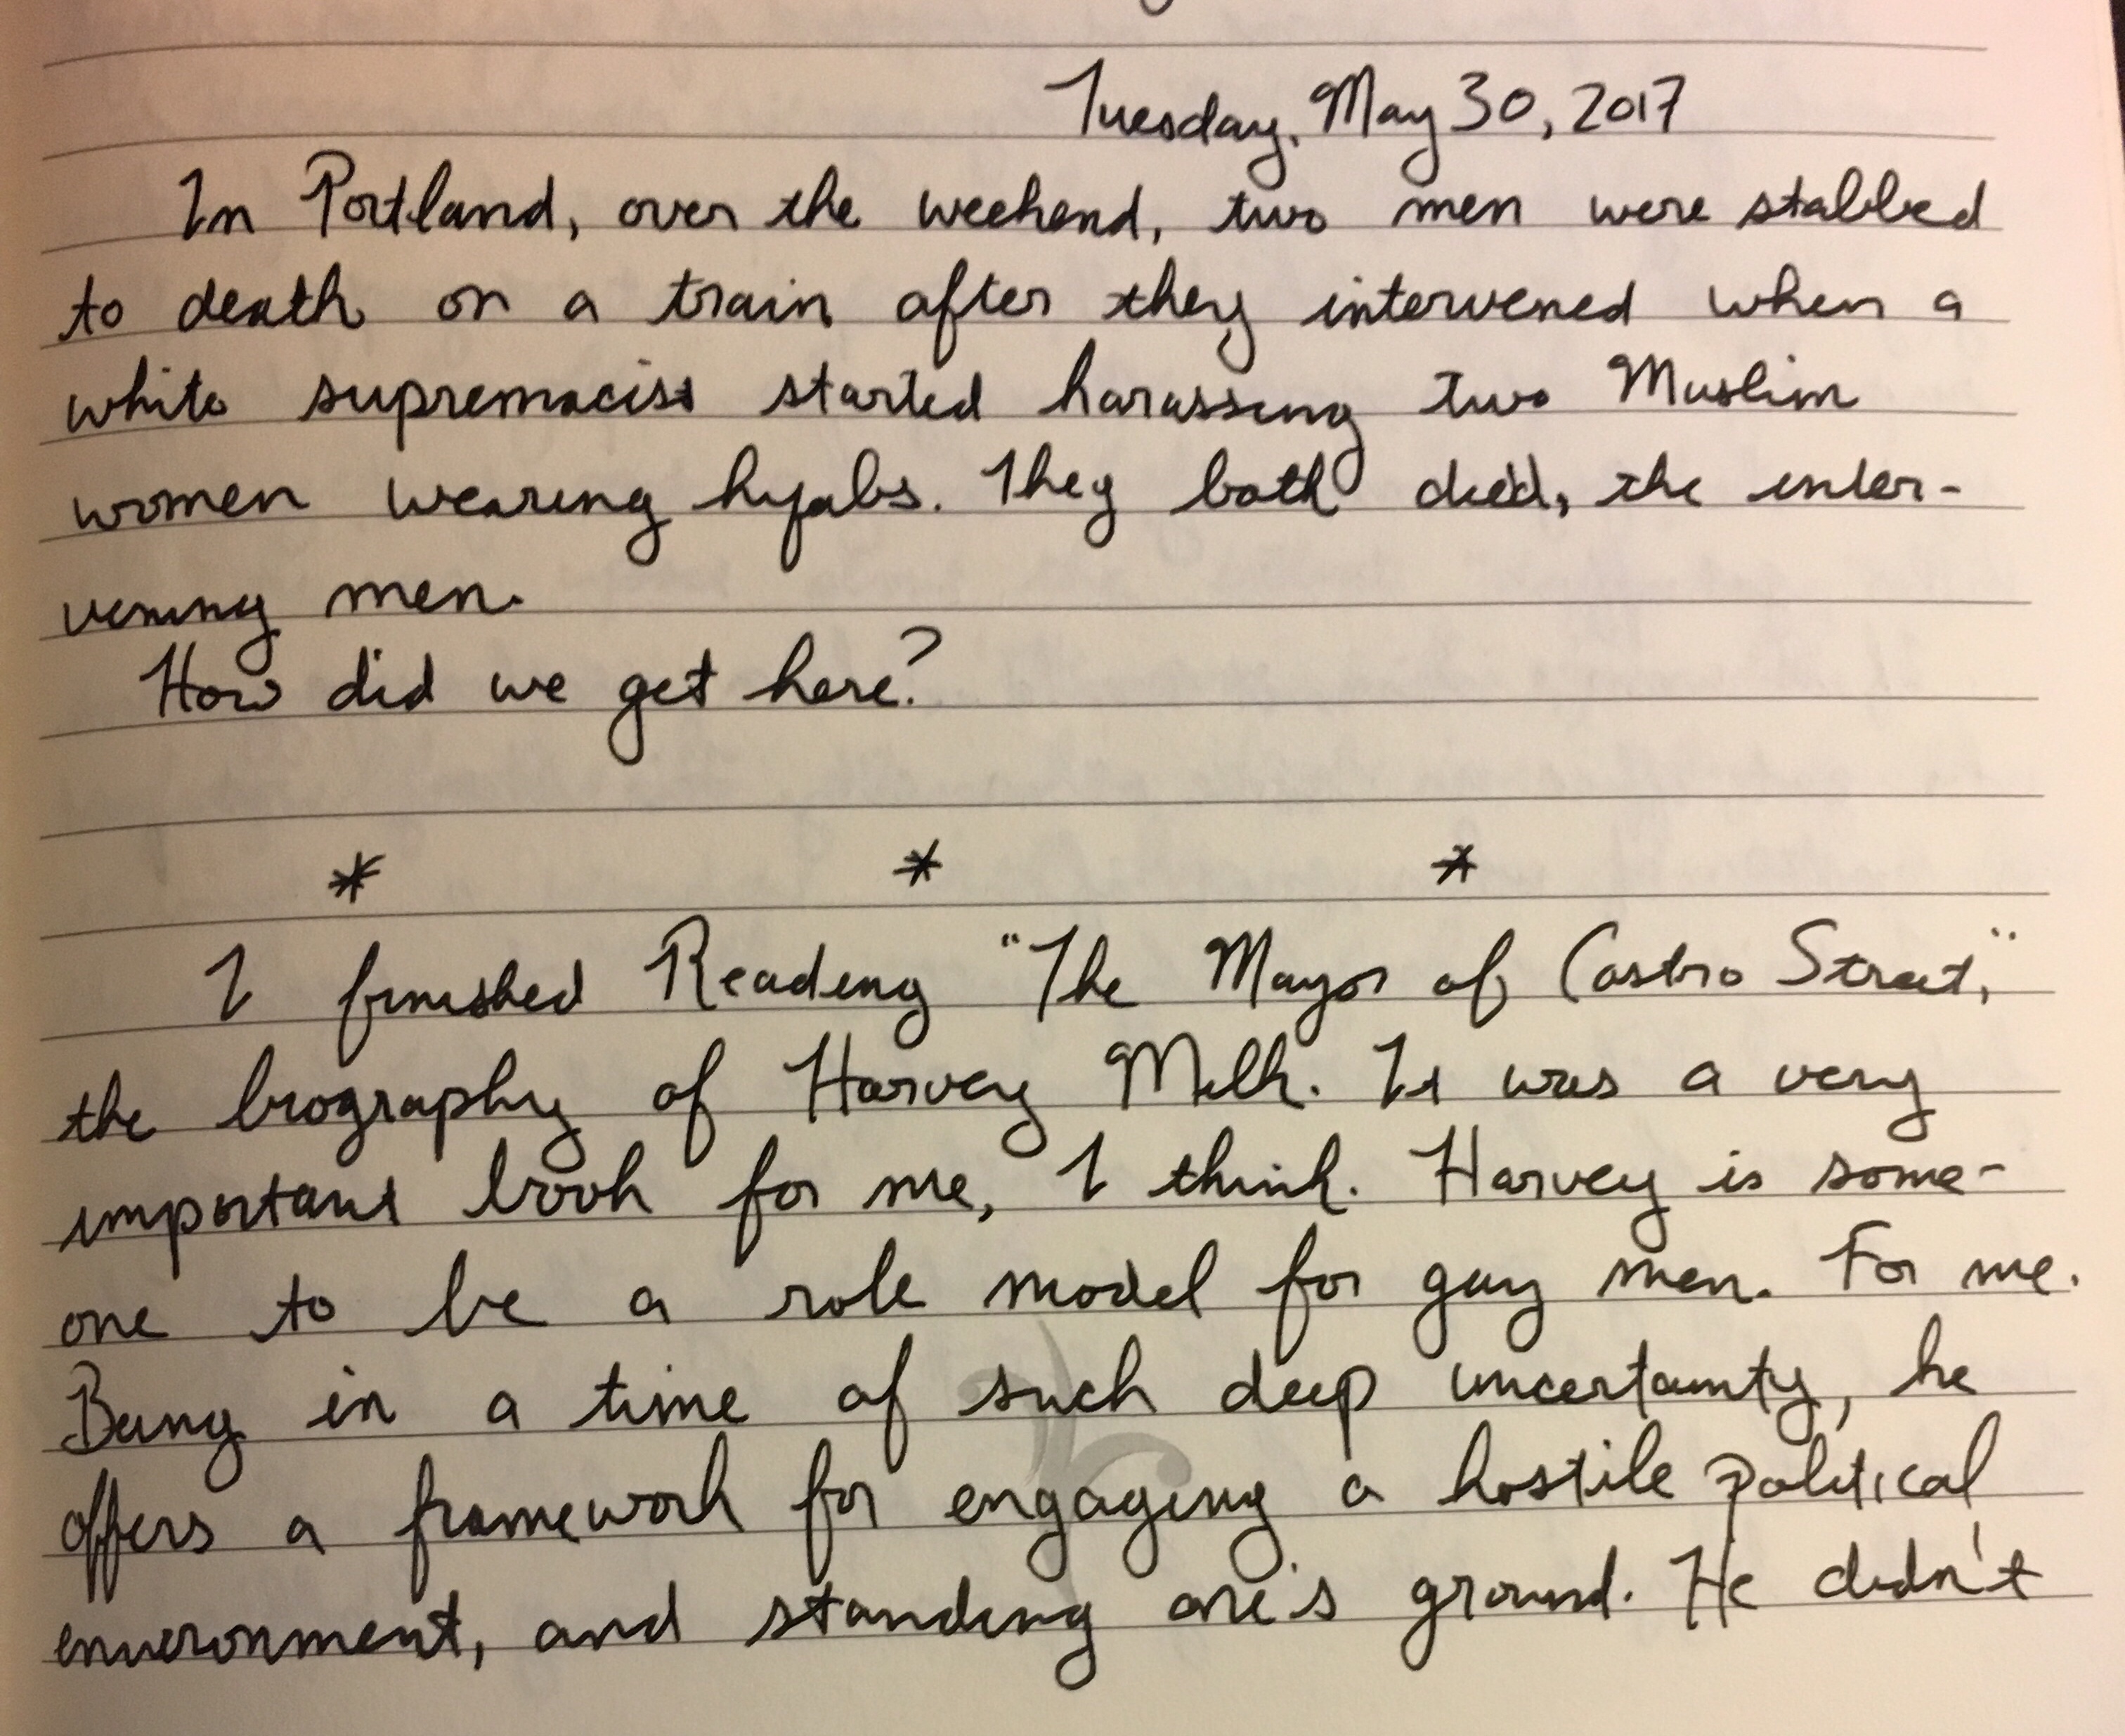 Tuesday, May 30, 2017
In Portland, over the weekend, two men were stabbed
to death on a train after they intervened when a
white supremacist started harassing two Muslim
women wearing hijabs. They both died, the inter-
vening men.
How did we get here?
* * *
I finished Reading "The Mayor of Castro Street,"
the biography of Harvey Milk. It was a very
important book for me, I think. Harvey is some-
one to be a role model for gay men. For me.
Being in a time of such deep uncertainty, he
offers a framework for engaging a hostile political
environment, and standing one's ground. He didn't